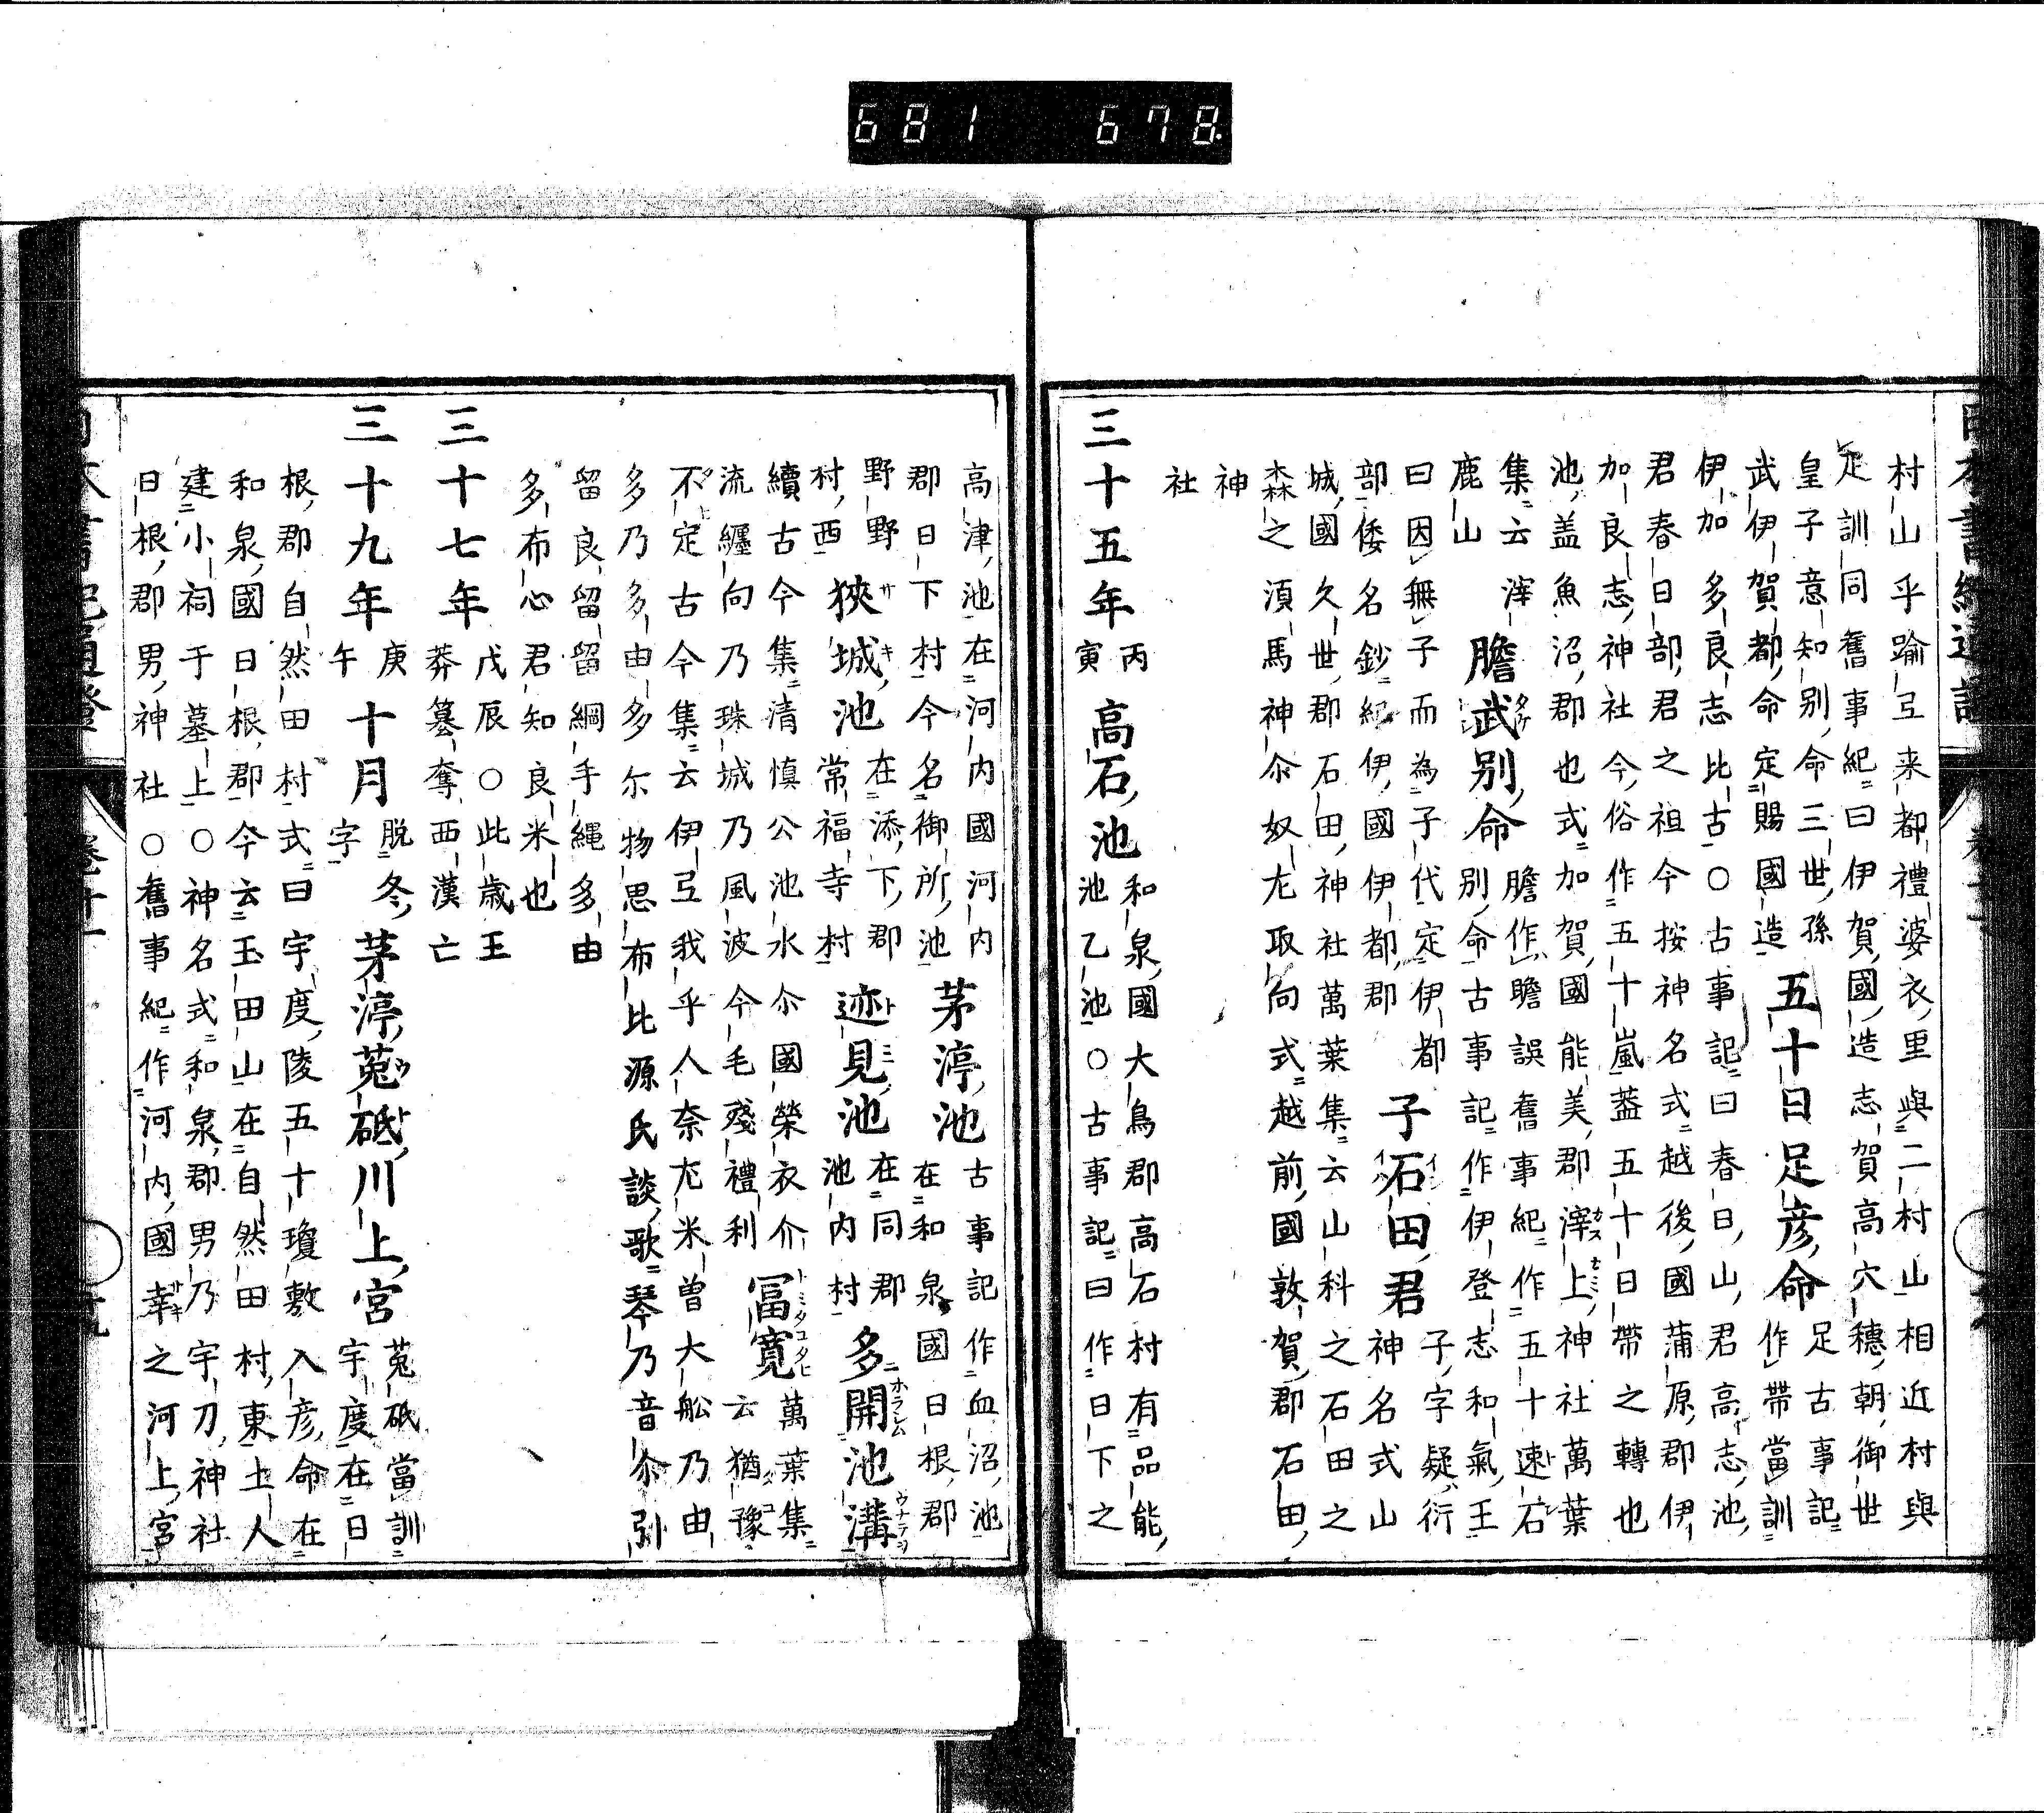 681 678
村山乎踰弖来都禮婆衣里與二村山相近村與
疋訓同舊事紀曰伊賀國造志賀高穴穗朝御世
皇子意知別命三世孫
武伊賀都命定賜國造
五十日足彦命
足古事記
作帶當訓
伊加多良志比古○古事記曰春日山君高志池
君春日部君之祖今按神名式越後國蒲原郡伊
加良志神社今俗作五十嵐葢五十日帶之轉也
池盖魚沼郡也式加賀國能美郡滓上神社萬葉
集云滓
鹿山
膽武別命
膽作瞻誤舊事紀作五十速石
別命古事記作伊登志和氣王
曰因無子而為子代定伊都
部倭名鈔紀伊國伊都郡
子石田君
子字疑衍
神名式山
城國久世郡石田神社萬葉集云山科之石田之
森之湏馬神尒奴尢取向式越前國敦賀郡石田
神
社
三十五年
丙
寅
高石池
和泉國大鳥郡高石村有品能
池乙池○古事記曰作日下之
高津池在河内國河内
郡日下村今名御所池
茅渟池
古事記作血沼池
在和泉國日根郡
野野
村西
狹城池
在添下郡
常福寺村
迹見池
在同郡
池内村
多開池溝
續古今集清慎公池水尒國榮衣介
流纒向乃珠城乃風波今毛殘禮利
冨寛
萬葉集
云猶豫
不定古今集云伊弖我乎人奈尢米曽大舩乃由
多乃多由多尓物思布比源氏談歌琴乃音尒引
留良留留綱手繩多由
多布心君知良米也
三十七年
戊辰○此歳王
莽簒奪西漢亡
三十九年
庚
午
十月
脱冬
字
茅渟菟砥川上宮
菟砥當訓
宇度在日
根郡自然田村式曰宇度陵五十瓊敷入彦命在
和泉國日根郡今云玉田山在自然田村東土人
建小祠于墓上○神名式和泉郡男乃宇刀神社
日根郡男神社○舊事紀作河内國幸之河上宮